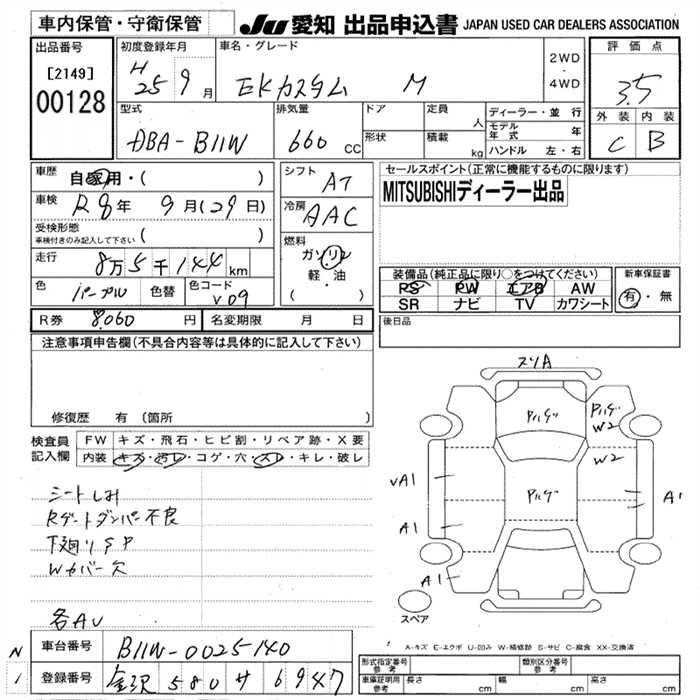 車内保管・守衛保管
JU 愛知 出品申込書 JAPAN USED CAR DEALERS ASSOCIATION
出品番号
[2149]
00128
初度登録年月
H25 9月
車名・グレード
EKカスタム M
2WD
・
4WD
評価点
3.5
外装 内装
C B
型式
DBA-B11W
排気量
660 CC
ドア
形状
定員 人
積載 kg
ディーラー・並行
モデル年式 年
ハンドル 左・右
車歴
自家用・( )
車検
R8年 9月(29日)
受検形態
車検付きのみ記入して下さい ( )
走行
8万5千144km
色
パープル
色替
色コード
V09
シフト
AT
冷房
AAC
燃料
ガソリン
軽・油
( )
セールスポイント(正常に機能するものに限ります)
MITSUBISHIディーラー出品
装備品(純正品に限り○をつけてください)
PS PW エアB AW
SR ナビ TV カワシート
新車保証書
有・無
R券 8,060円
名変期限 月 日
後日品
注意事項申告欄(不具合内容等は具体的に記入して下さい)
修復歴 有 (箇所 )
検査員記入欄
FW キズ・飛石・ヒビ割・リペア跡・X要
内装 キズ・汚レ・コゲ・穴・スレ・キレ・破レ
シートしみ
Rゲートダンパー不良
下廻りSP
Wカバー欠
各AU
スリA
アルゲ
アルゲ
W2
W2
アルゲ
UA1
A1
A1
A1
スペア
A-キズ E-エクボ U-凹み W-補修跡 S-サビ C-腐食 XX-交換済
N
1
車台番号 B11W-0025140
登録番号 金沢 580 サ 6947
形式指定番号 参考
類別区分番号 参考
車庫証明用 参考
長さ cm
幅 cm
高さ cm